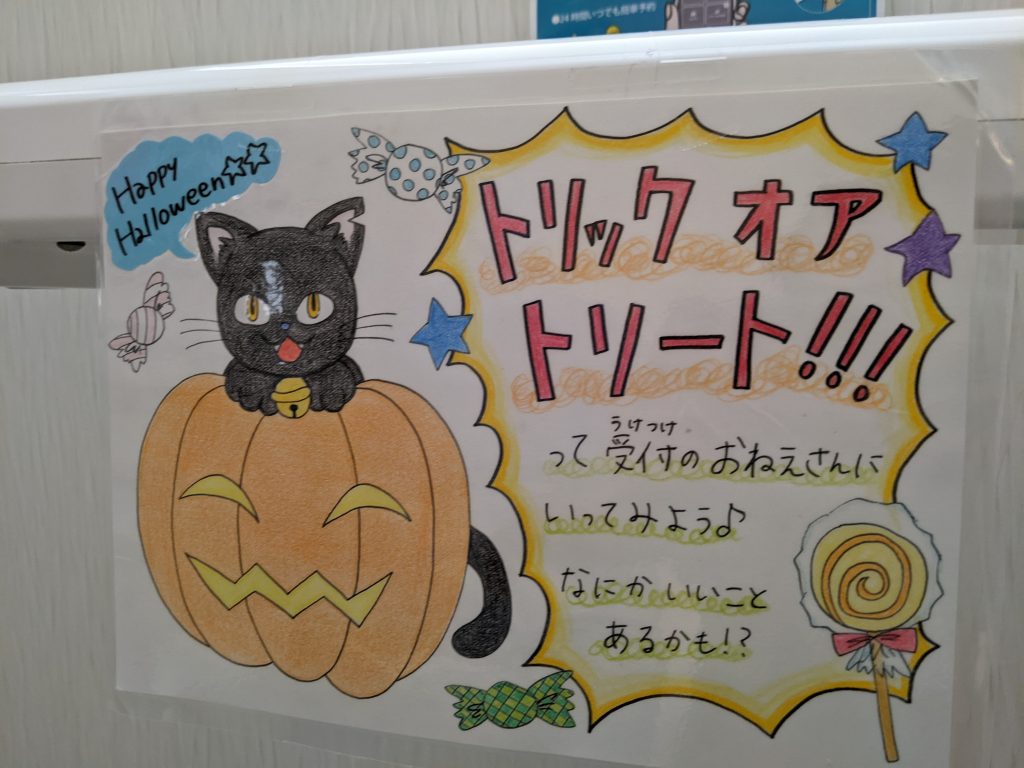 ●24時間いつでも簡単予約
Happy
Halloween☆☆
トリック オア
トリート!!!
うけつけ
って 受付の おねえさんに
いってみよう♪
なにか いいこと
あるかも!?